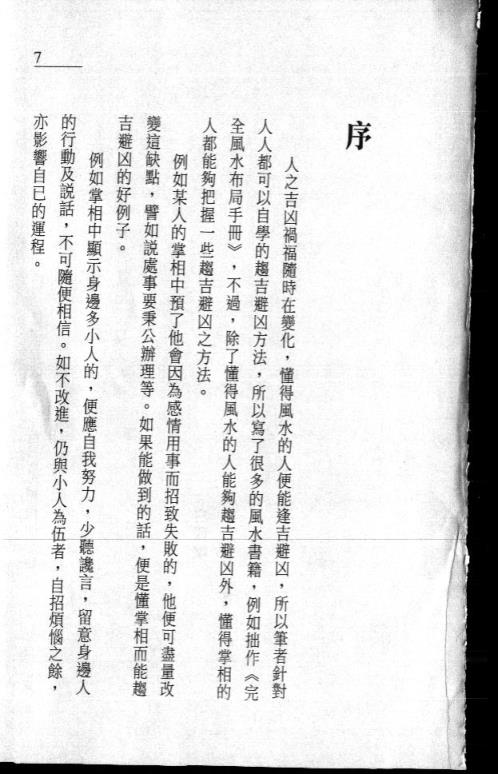 7
序
人之吉凶禍福隨時在變化，懂得風水的人便能逢吉避凶，所以筆者針對
人人都可以自學的趨吉避凶方法，所以寫了很多的風水書籍，例如拙作《完
全風水布局手冊》，不過，除了懂得風水的人能夠趨吉避凶外，懂得掌相的
人都能夠把握一些趨吉避凶之方法。
例如某人的掌相中預了他會因為感情用事而招致失敗的，他便可盡量改
變這缺點，譬如說處事要秉公辦理等。如果能做到的話，便是懂掌相而能趨
吉避凶的好例子。
例如掌相中顯示身邊多小人的，便應自我努力，少聽讒言，留意身邊人
的行動及説話，不可隨便相信。如不改進，仍與小人為伍者，自招煩惱之餘，
亦影響自已的運程。